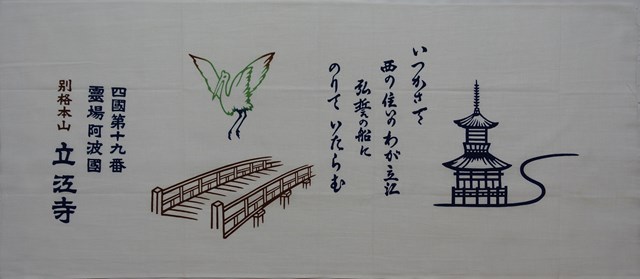 いつかさて
西の住いの わが立江
弘誓の船に
のりて いたらむ
四國第十九番
靈場 阿波國
別格本山
立江寺